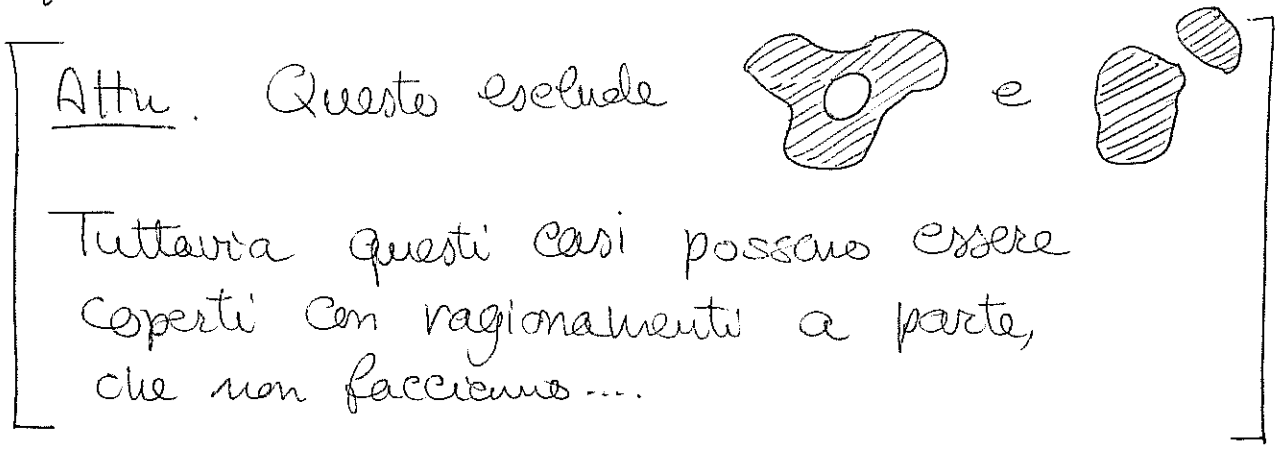 Attn. Questo esclude e
Tuttavia questi casi possono essere
coperti con ragionamenti a parte,
che non facciamo....